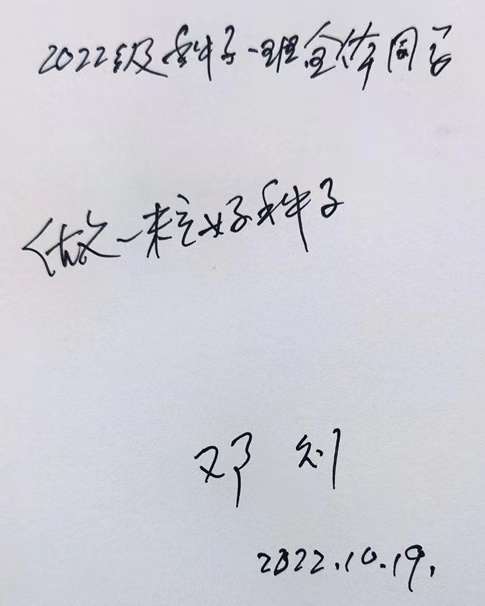 2022级种子一班全体同学
做一粒好种子
邓
2022.10.19.